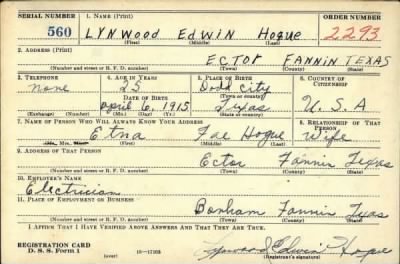 SERIAL NUMBER 1. NAME (Print) ORDER NUMBER
560 LYNWOOD EDWIN Hogue 2293
(First) (Middle) (Last)
2. ADDRESS (Print)
ECTOR FANNIN TEXAS
(Number and street or R. F. D. number) (Town) (County) (State)
3. TELEPHONE 4. AGE IN YEARS 5. PLACE OF BIRTH 6. COUNTRY OF CITIZENSHIP
None 25 Dodd City
DATE OF BIRTH (Town or county)
April 6, 1915 Texas U.S.A
(Exchange) (Number) (Mo.) (Day) (Yr.) (State or country)
7. NAME OF PERSON WHO WILL ALWAYS KNOW YOUR ADDRESS 8. RELATIONSHIP OF THAT PERSON
Etna Fae Hogue Wife
(Mr., Mrs., Miss) (First) (Middle) (Last)
9. ADDRESS OF THAT PERSON
Ector Fannin Texas
(Number and street or R. F. D. number) (Town) (County) (State)
10. EMPLOYER'S NAME
Electrician
11. PLACE OF EMPLOYMENT OR BUSINESS
Bonham Fannin Texas
(Number and street or R. F. D. number) (Town) (County) (State)
I AFFIRM THAT I HAVE VERIFIED ABOVE ANSWERS AND THAT THEY ARE TRUE.
REGISTRATION CARD Lynwood Edwin Hogue
D. S. S. Form 1 (over) (Registrant's signature)